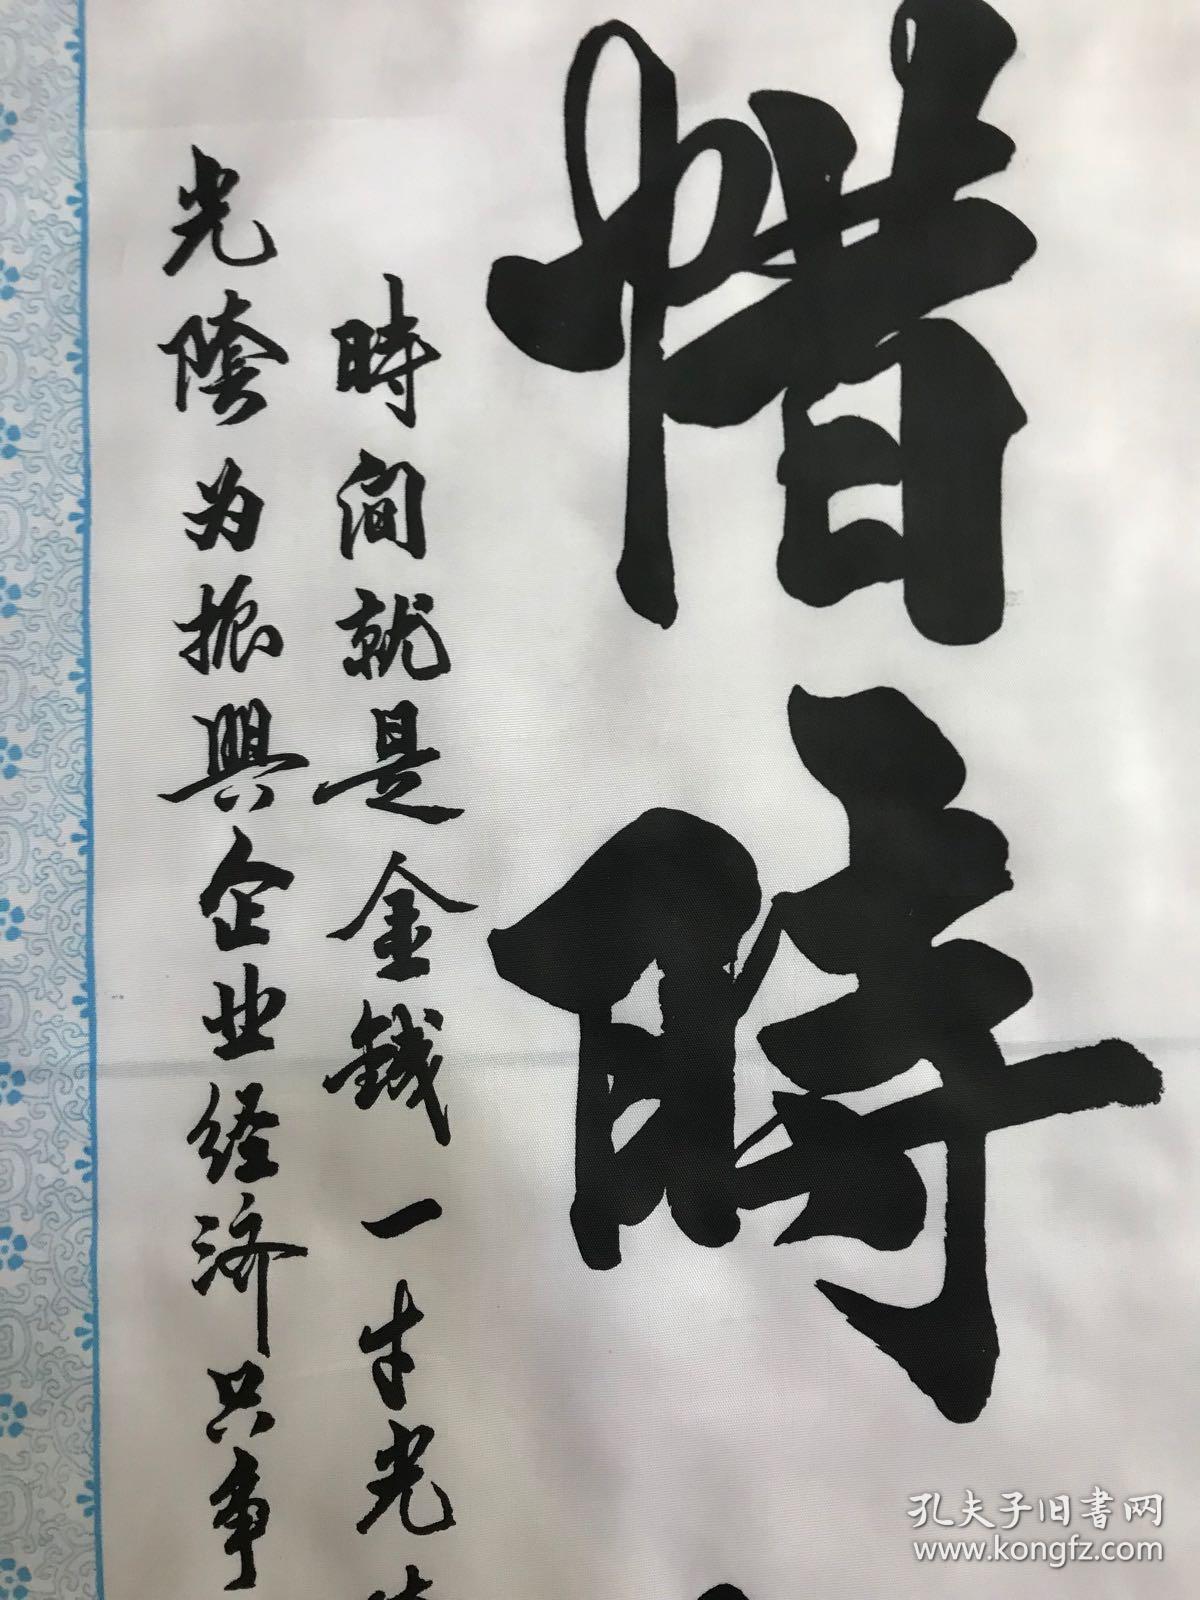 惜時
時间就是金錢一生光
光陰为振興企业经济只争
孔夫子旧书网
www.kongfz.com